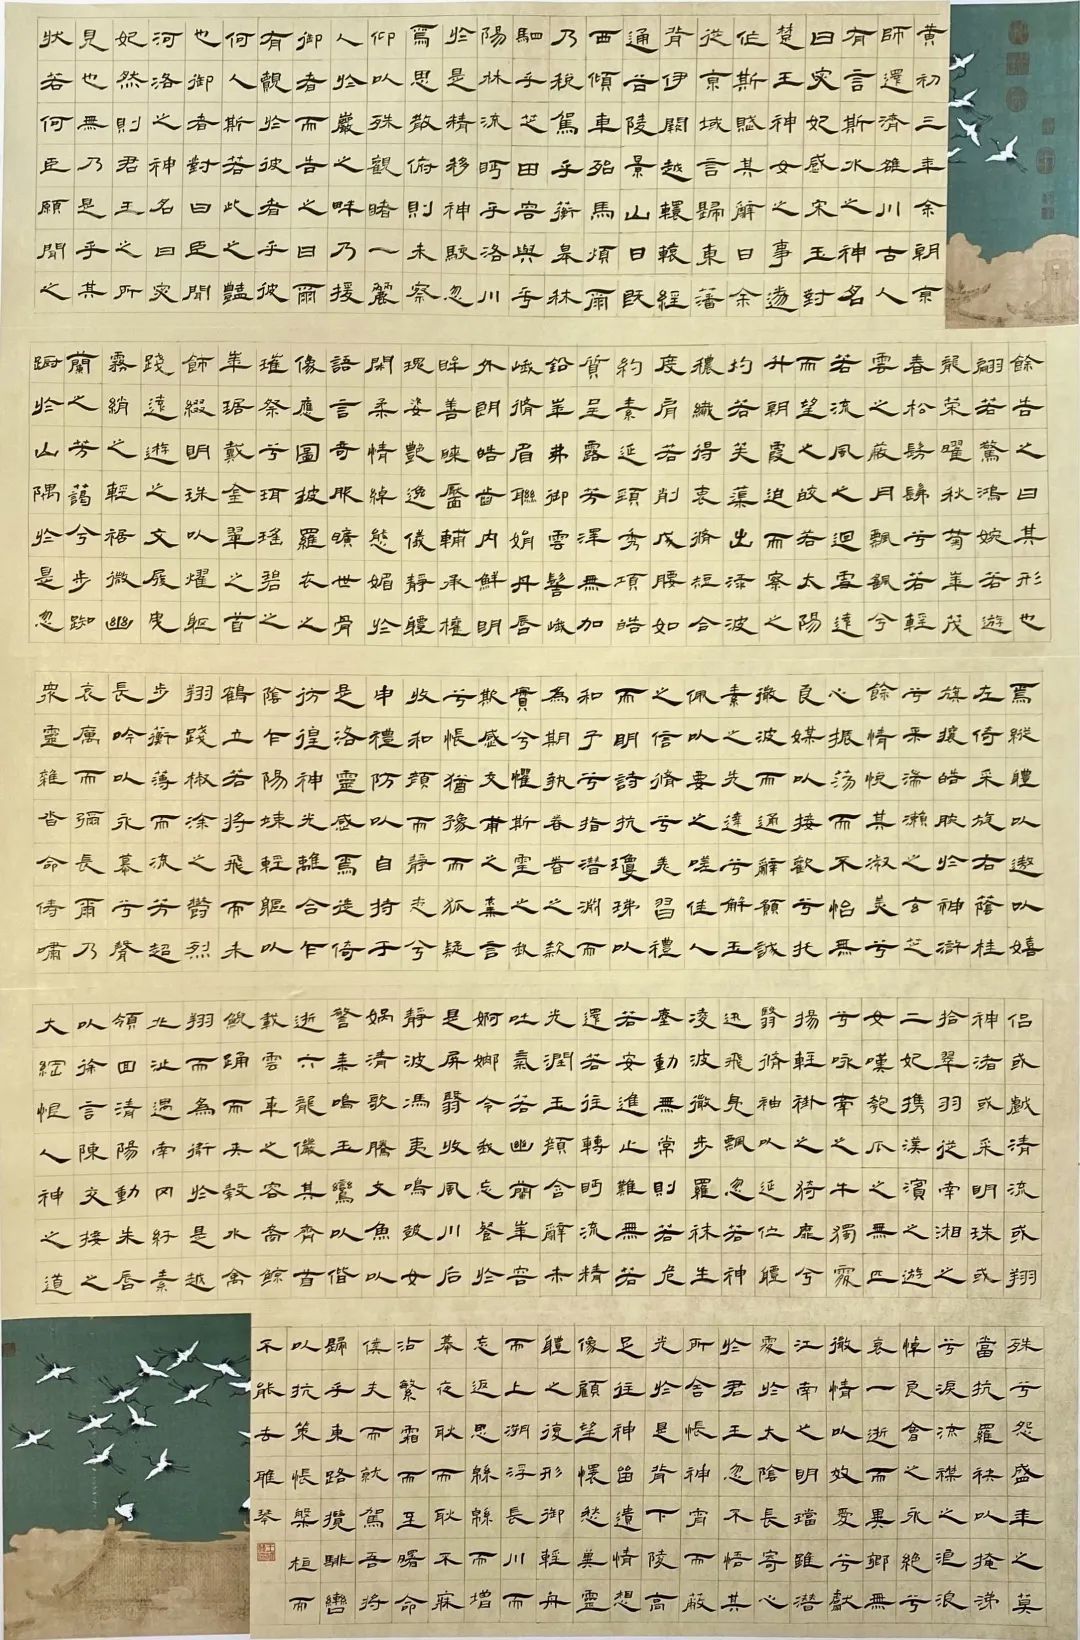 黃初三年余朝京
師還濟雒川古人
有言斯水之神名
曰宓妃感宋玉對
楚王神女之事遂
作斯賦其辭曰余
從京域言歸東藩
背伊闕越轘轅經
通谷陵景山日既
西傾車殆馬煩爾
乃稅駕乎蘅皋秣
駟乎芝田容與乎
陽林流眄乎洛川
於是精移神駭忽
焉思散俯則未察
仰以殊觀睹一麗
人於巖之畔乃援
御者而告之曰爾
有覿於彼者乎彼
何人斯若此之豔
也御者對曰臣聞
河洛之神名曰宓
妃然則君王之所
見也無乃是乎其
狀若何臣願聞之
餘告之曰其形也
翩若驚鴻婉若遊
龍榮曜秋菊華茂
春松髣髴兮若輕
雲之蔽月飄飖兮
若流風之迴雪遠
而望之皎若太陽
升朝霞迫而察之
灼若芙蕖出淥波
穠纖得衷脩短合
度肩若削成腰如
約素延頸秀項皓
質呈露芳澤無加
鉛華弗御雲髻峨
峨脩眉聯娟丹唇
外朗皓齒內鮮明
眸善睞靨輔承權
瑰姿豔逸儀靜體
閑柔情綽態媚於
語言奇服曠世骨
像應圖披羅衣之
璀粲兮珥瑤碧之
華琚戴金翠之首
飾綴明珠以耀軀
踐遠遊之文履曳
霧綃之輕裾微幽
蘭之芳藹兮步踟
躕於山隅於是忽
焉縱體以遨以嬉
左倚采旄右蔭桂
旗攘皓腕於神滸
兮采湍瀨之玄芝
餘情悅其淑美兮
心振蕩而不怡無
良媒以接歡兮託
微波而通辭願誠
素之先達兮解玉
佩以要之嗟佳人
之信脩兮羌習禮
而明詩抗瓊珶以
和予兮指潛淵而
為期執眷眷之款
實兮懼斯靈之我
欺感交甫之棄言
兮悵猶豫而狐疑
收和顏而靜志兮
申禮防以自持於
是洛靈感焉徙倚
彷徨神光離合乍
陰乍陽竦輕軀以
鶴立若將飛而未
翔踐椒塗之郁烈
步蘅薄而流芳超
長吟以永慕兮聲
哀厲而彌長爾乃
眾靈雜沓命儔嘯
侶或戲清流或翔
神渚或采明珠或
拾翠羽從南湘之
二妃攜漢濱之遊
女嘆匏瓜之無匹
兮詠牽牛之獨處
揚輕袿之猗靡兮
翳脩袖以延佇體
迅飛鳧飄忽若神
凌波微步羅襪生
塵動無常則若危
若安進止難無若
還若往轉眄流精
光潤玉顏含辭未
吐氣若幽蘭華容
婀娜令我忘餐於
是屏翳收風川后
靜波馮夷鳴鼓女
媧清歌騰文魚以
警乘鳴玉鸞以偕
逝六龍儼其齊首
載雲車之容裔鯨
鯢踊而夾轂水禽
翔而為衛於是越
北沚過南岡紆素
領回清陽動朱唇
以徐言陳交接之
大綱恨人神之道
殊兮怨盛年之莫
當抗羅袂以掩涕
兮淚流襟之浪浪
悼良會之永絕兮
哀一逝而異鄉無
微情以效愛兮獻
江南之明璫雖潛
處於太陰長寄心
於君王忽不悟其
所舍悵神宵而蔽
光於是背下陵高
足往神留遺情想
像顧望懷愁冀靈
體之復形御輕舟
而上溯浮長川而
忘返思綿綿而增
慕夜耿耿而不寐
沾繁霜而至曙命
僕夫而就駕吾將
歸乎東路攬騑轡
以抗策悵盤桓而
不能去 雅琴